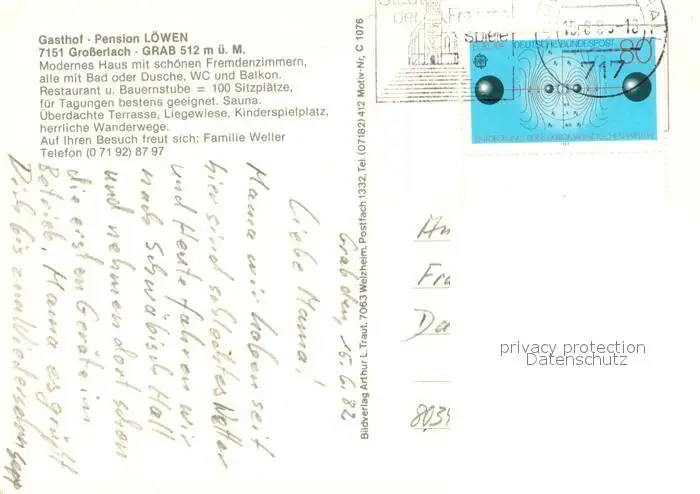 Gasthof · Pension LÖWEN
7151 Großerlach · GRAB 512 m ü. M.
Modernes Haus mit schönen Fremdenzimmern,
alle mit Bad oder Dusche, WC und Balkon.
Restaurant u. Bauernstube = 100 Sitzplätze,
für Tagungen bestens geeignet. Sauna.
Überdachte Terrasse, Liegewiese, Kinderspielplatz,
herrliche Wanderwege.
Auf Ihren Besuch freut sich: Familie Weller
Telefon (0 71 92) 87 97
Bildverlag Arthur L. Traut, 7063 Welzheim, Postfach 1332, Tel. (07182) 412 Motiv-Nr. C 1076
der
spiele
717
EUROPA DEUTSCHE BUNDESPOST 80
Grab den
Liebe Mama!
Mama wir haben seit
hier sind schlechtes Wetter
und Heute fahren wir
nach Schwäbisch Hall
und nehmen dort schon
die ersten Geräte in
Betrieb. Mama es grüßt
Dich bis zum Wiedersehn Sepp
An
Fra
Da
privacy protection
Datenschutz